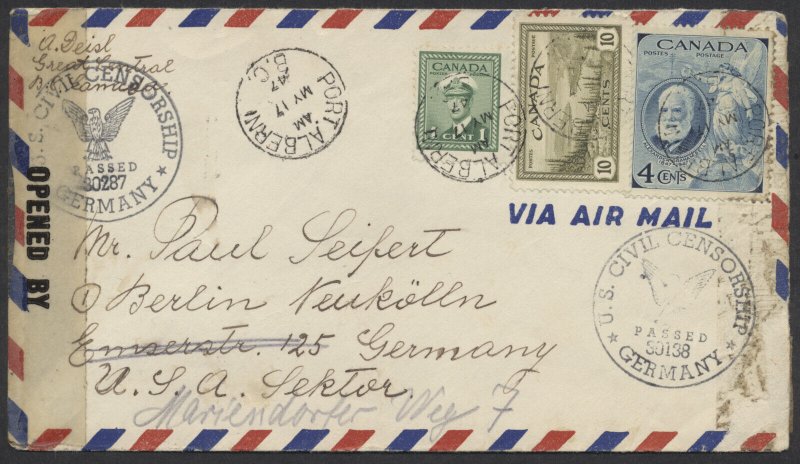 A. Deisl
Great Central
B.C. Canada
U.S. CIVIL CENSORSHIP
PASSED
30287
GERMANY
OPENED BY
PORT ALBERNI
AM
MY 17
47
B.C.
CANADA
POSTES POSTAGE
1 CENT 1
PORT ALBERNI
AM
MY
47
CANADA
10 CENTS 10
CANADA
POSTES POSTAGE
4 CENTS
VIA AIR MAIL
Mr. Paul Seifert
1 Berlin Neukölln
Emserstr. 125 Germany
U.S.A. Sektor.
Mariendorfer Weg 7
U.S. CIVIL CENSORSHIP
PASSED
30138
GERMANY